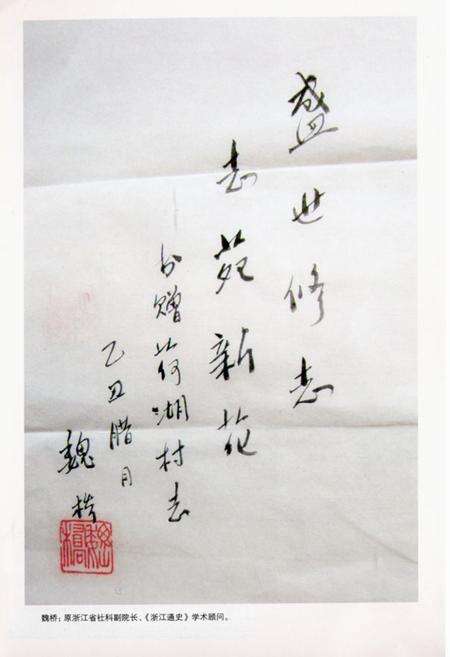 盛世修志
志苑新花
书赠荷湖村志
乙丑腊月
魏桥
魏桥：原浙江省社科副院长、《浙江通史》学术顾问。